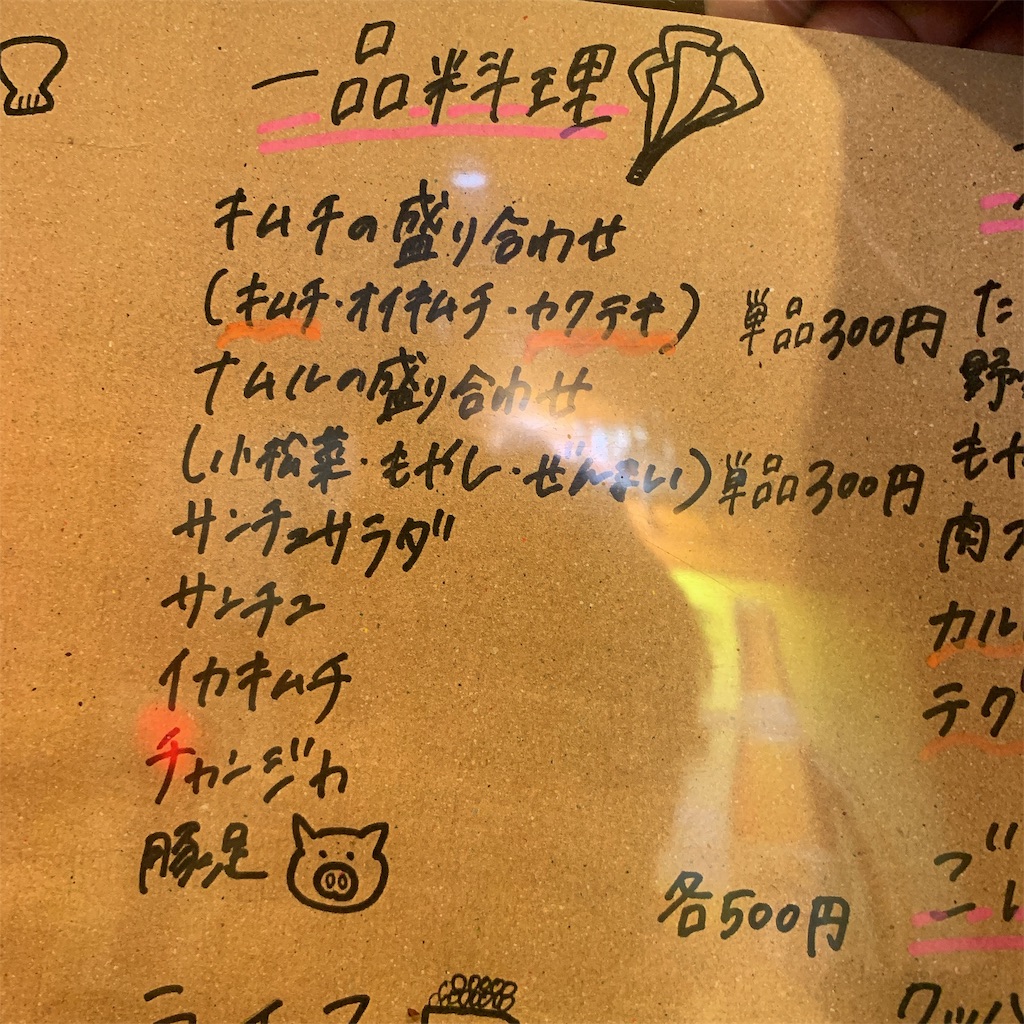 一品料理
キムチの盛り合わせ
(キムチ・オイキムチ・カクテキ) 単品300円
ナムルの盛り合わせ
(小松菜・もやし・ぜんまい) 単品300円
サンチュサラダ
サンチュ
イカキムチ
チャンジャ
豚足
各500円
ライス
た
野
もや
肉
カル
テク
クッパ